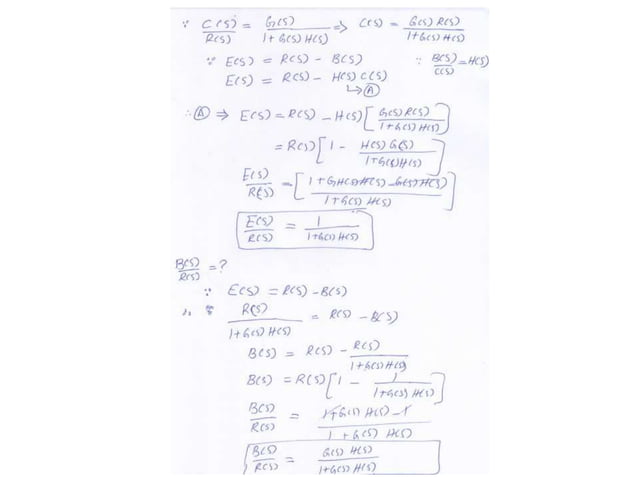 ∵ C(S)/R(S) = G(S)/1+G(S)H(S) ⇒ C(S) = G(S)R(S)/1+G(S)H(S)
∵ E(S) = R(S) - B(S) ∵ B(S)/C(S) = H(S)
E(S) = R(S) - H(S)C(S)
↳Ⓐ
∴ Ⓐ ⇒ E(S) = R(S) - H(S)[G(S)R(S)/1+G(S)H(S)]
= R(S)[1 - H(S)G(S)/1+G(S)H(S)]
E(S)/R(S) = [1+G(S)H(S)-G(S)H(S)/1+G(S)H(S)]
E(S)/R(S) = 1/1+G(S)H(S)
B(S)/R(S) = ?
∵ E(S) = R(S) - B(S)
∴ R(S)/1+G(S)H(S) = R(S) - B(S)
B(S) = R(S) - R(S)/1+G(S)H(S)
B(S) = R(S)[1 - 1/1+G(S)H(S)]
B(S)/R(S) = 1+G(S)H(S)-1/1+G(S)H(S)
B(S)/R(S) = G(S)H(S)/1+G(S)H(S)